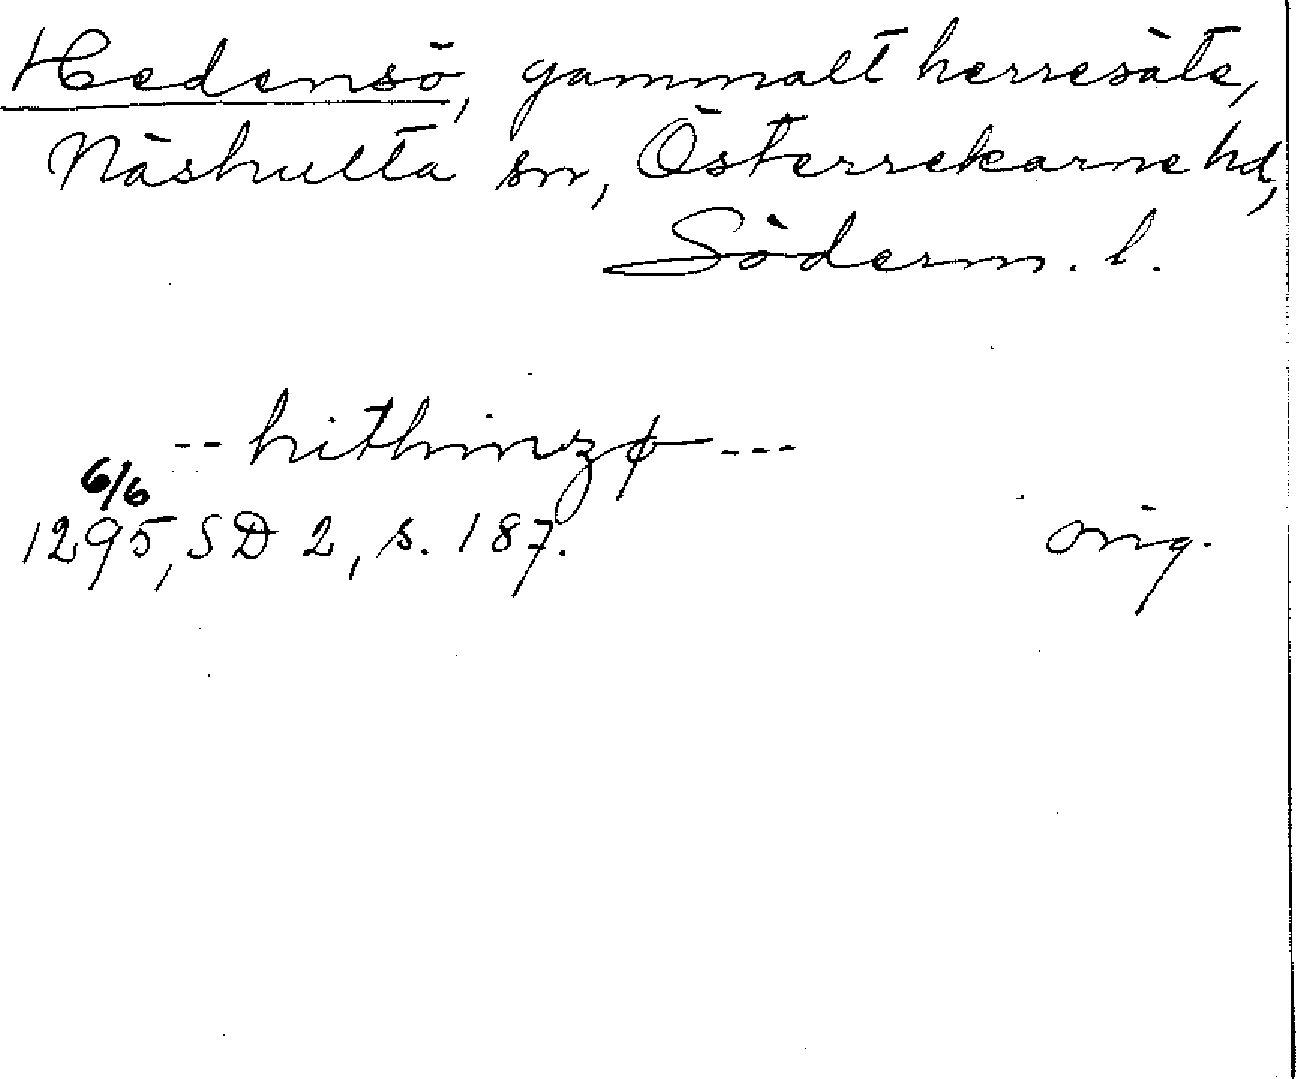 Hedensö, gammalt herresäte,
Näshulta sn, Österrekarne hd,
Söderm. l.
-- hithinzø ---
6/6
1295, SD 2, s. 187.
orig.